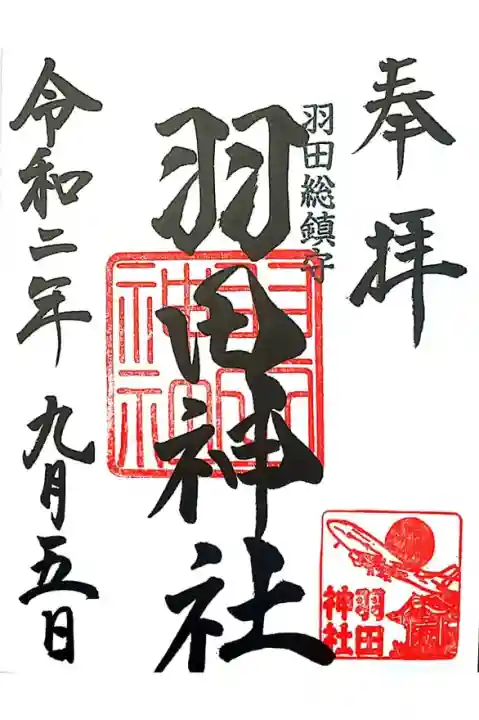 奉拝
羽田総鎮守
羽田神社
羽田神社
羽田
神社
令和二年 九月五日